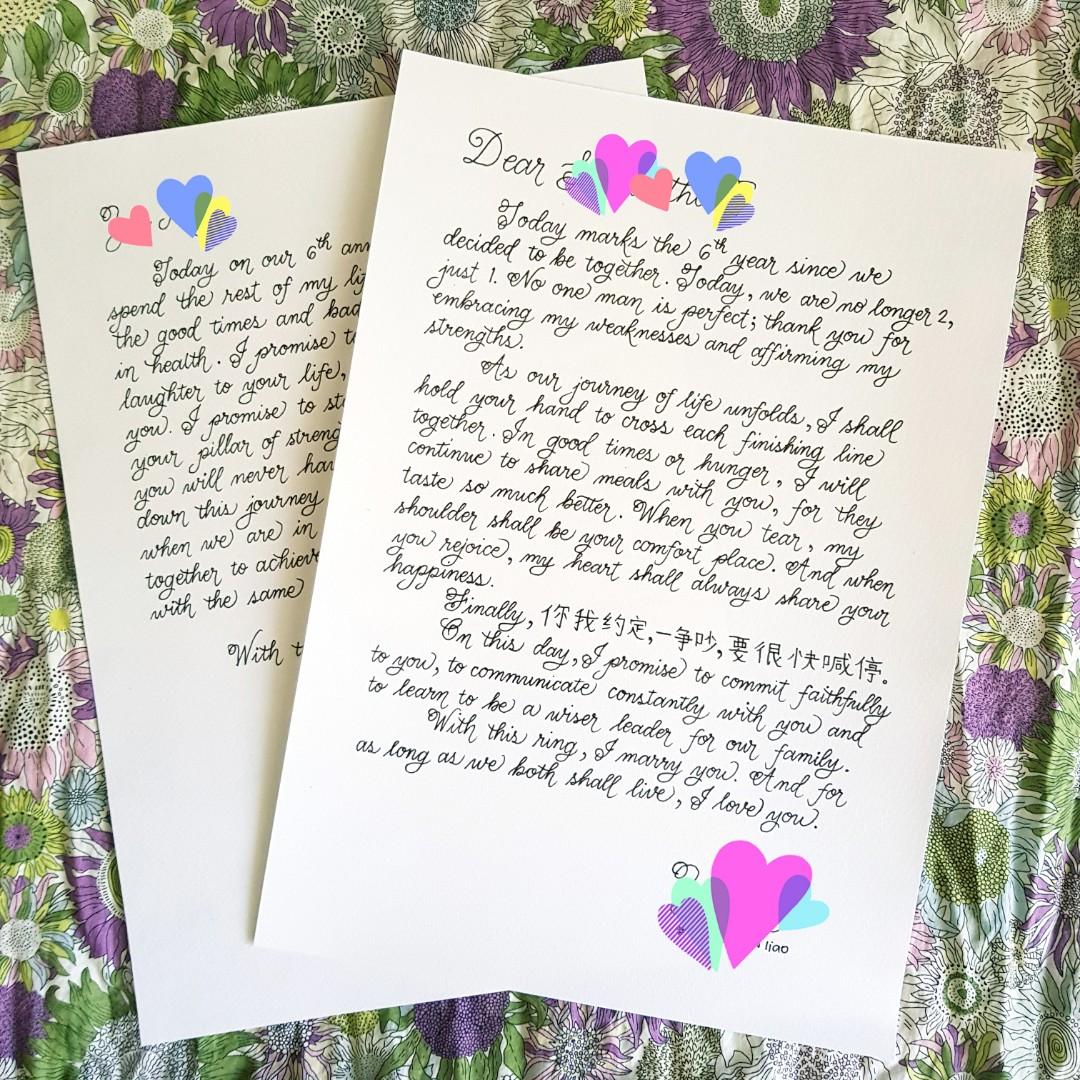 Today on our 6th
spend the rest of my
the good times and bad
in health. I promise
laughter to your life,
you. I promise to
your pillar of
you will never
down this journey
when we are in
together to
with the same
With
Dear
Today marks the 6th year since we
decided to be together. Today, we are no longer 2,
just 1. No one man is perfect; thank you for
embracing my weaknesses and affirming my
strengths.
As our journey of life unfolds, I shall
hold your hand to cross each finishing line
together. In good times or hunger, I will
continue to share meals with you, for they
taste so much better. When you tear, my
shoulder shall be your comfort place. And when
you rejoice, my heart shall always share your
happiness.
Finally, 你我约定,一争吵,要很快喊停。
On this day, I promise to commit faithfully
to you, to communicate constantly with you and
to learn to be a wiser leader for our family.
With this ring, I marry you. And for
as long as we both shall live, I love you.
liao